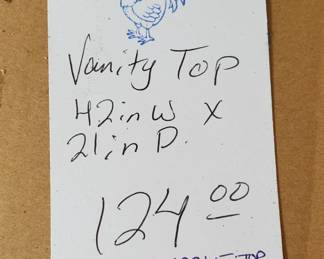 Vanity Top
42in W x
21in D.
124 00